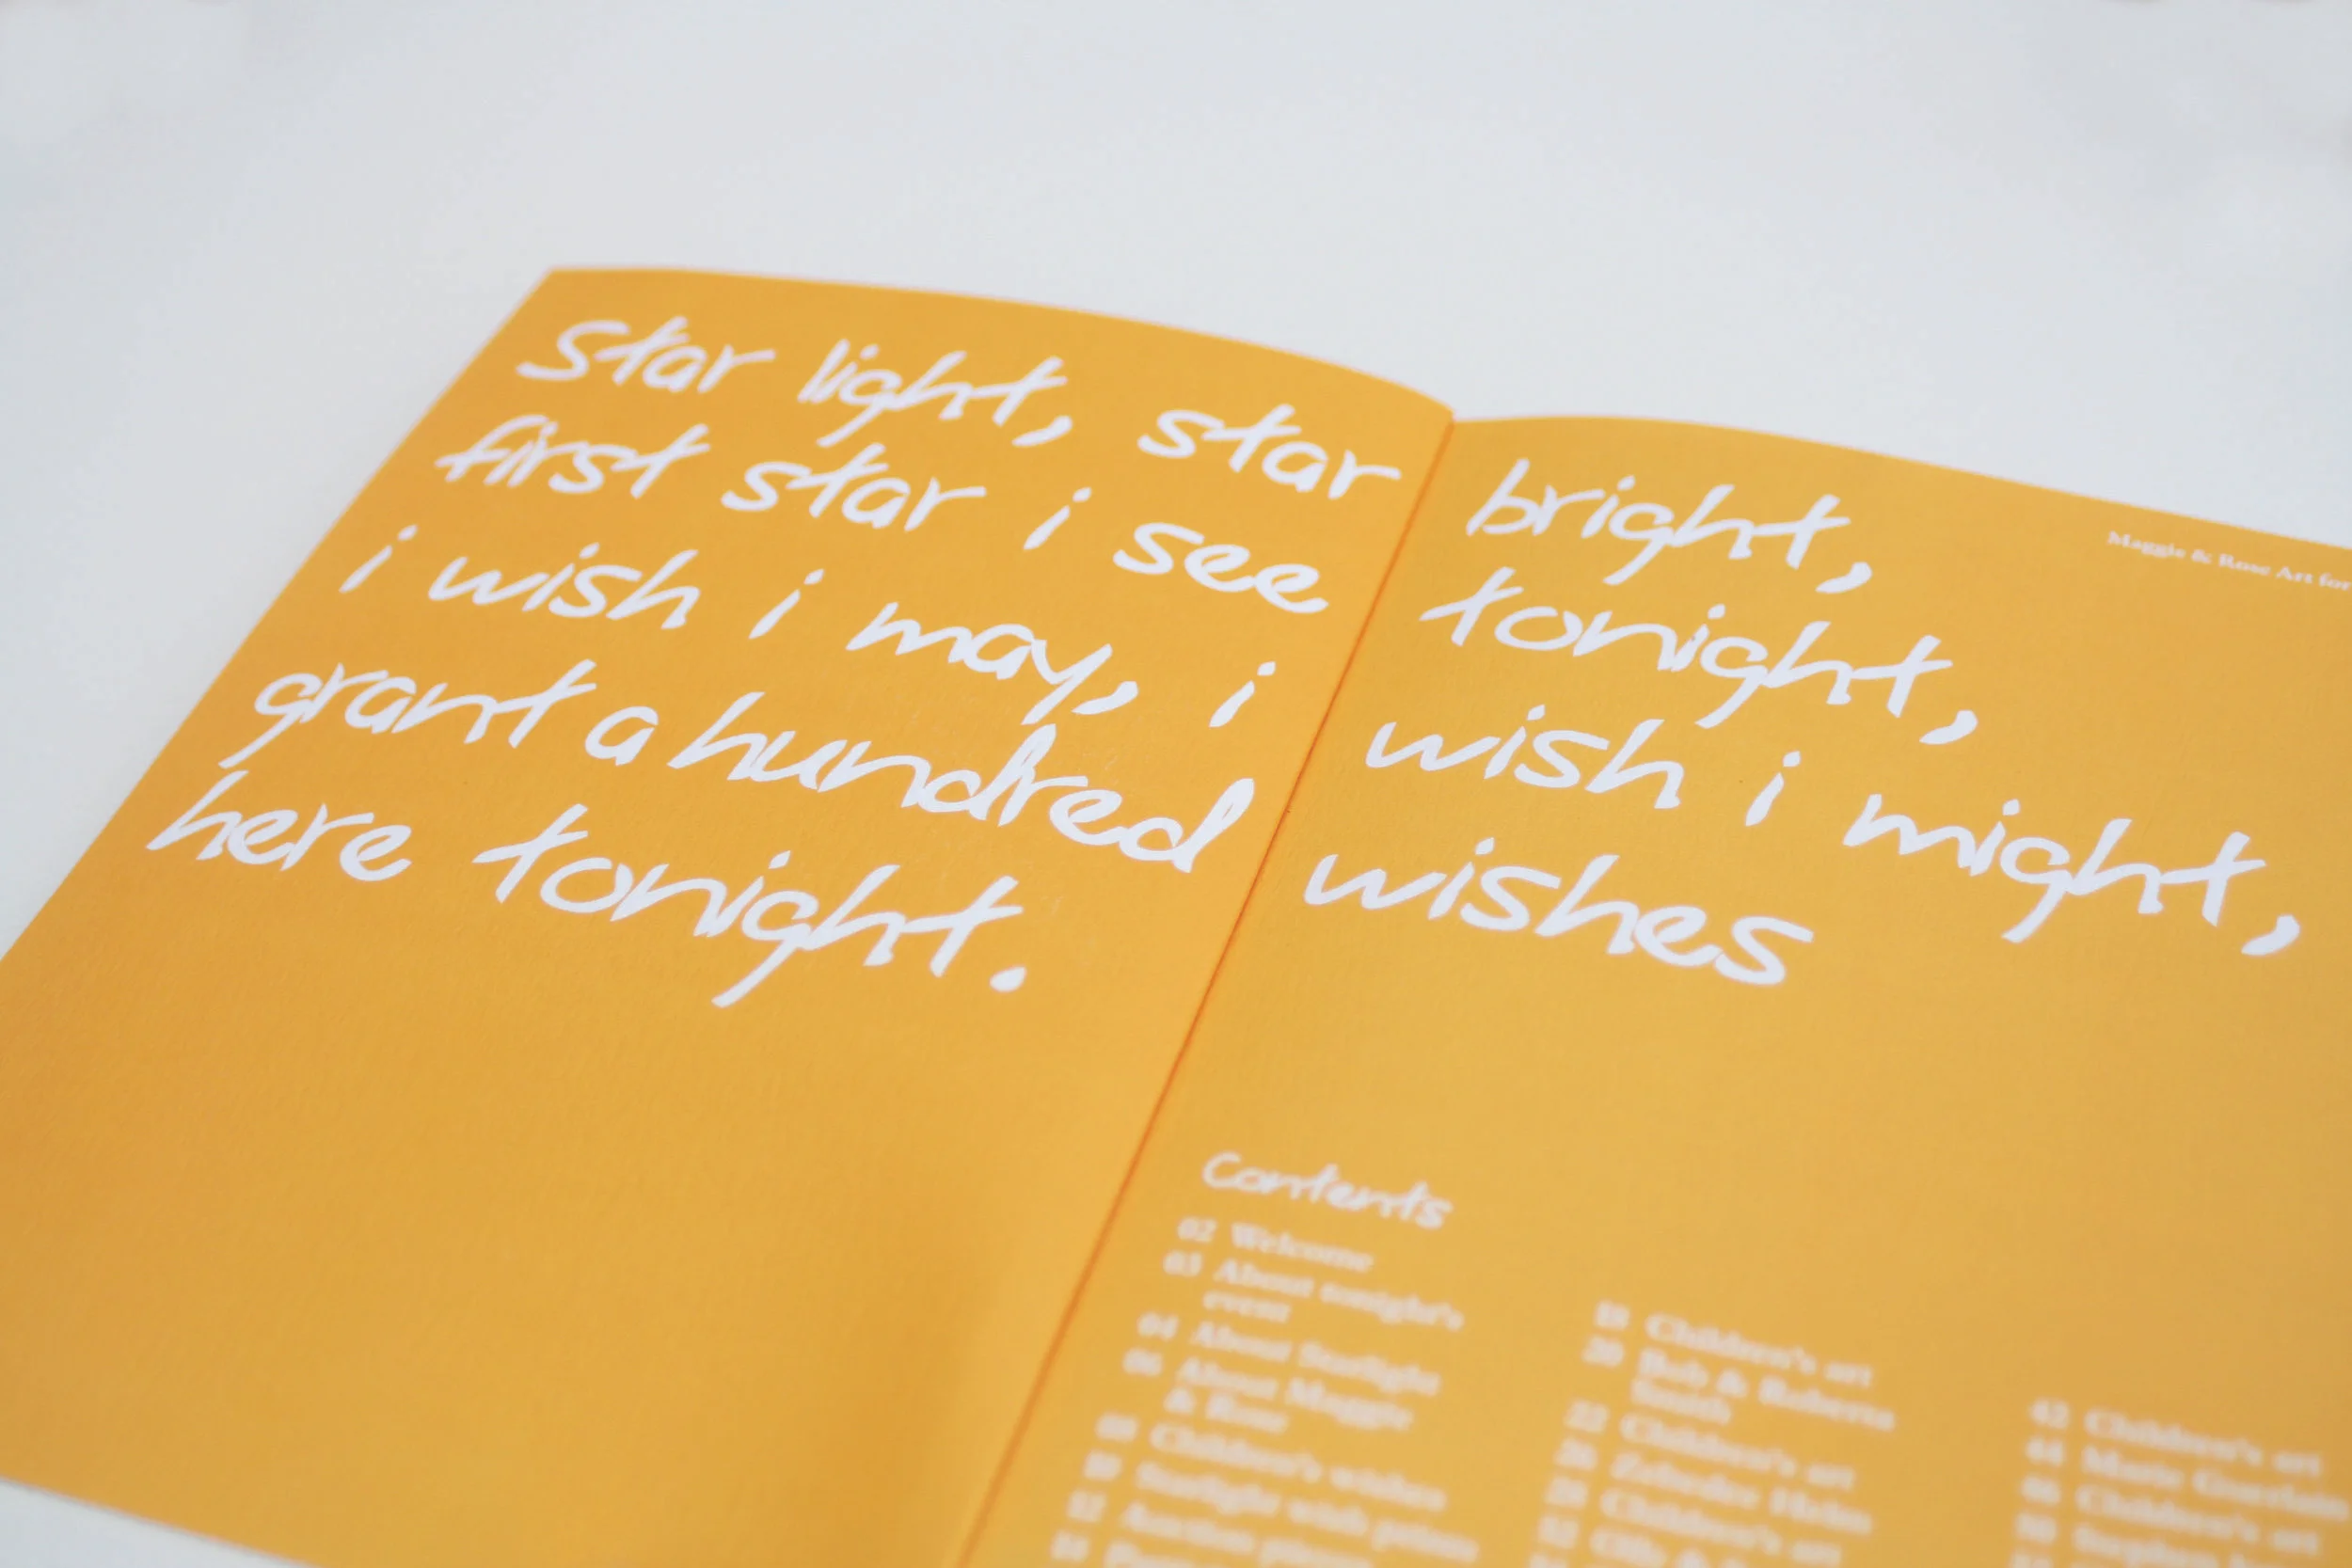 Star light, star bright,
first star i see tonight,
i wish i may, i wish i might,
grant a hundred wishes
here tonight.
Maggie & Rose Art for
Contents
02 Welcome
03 About tonight's
event
04 About Starlight
06 About Maggie
& Rose
08 Children's wishes
10 Starlight wish prints
12 Auction pieces
18 Children's art
20 Bob & Roberta
Smith
22 Children's art
26
28 Children's art
42 Children's art
44 Marie
Children's art
Stephen